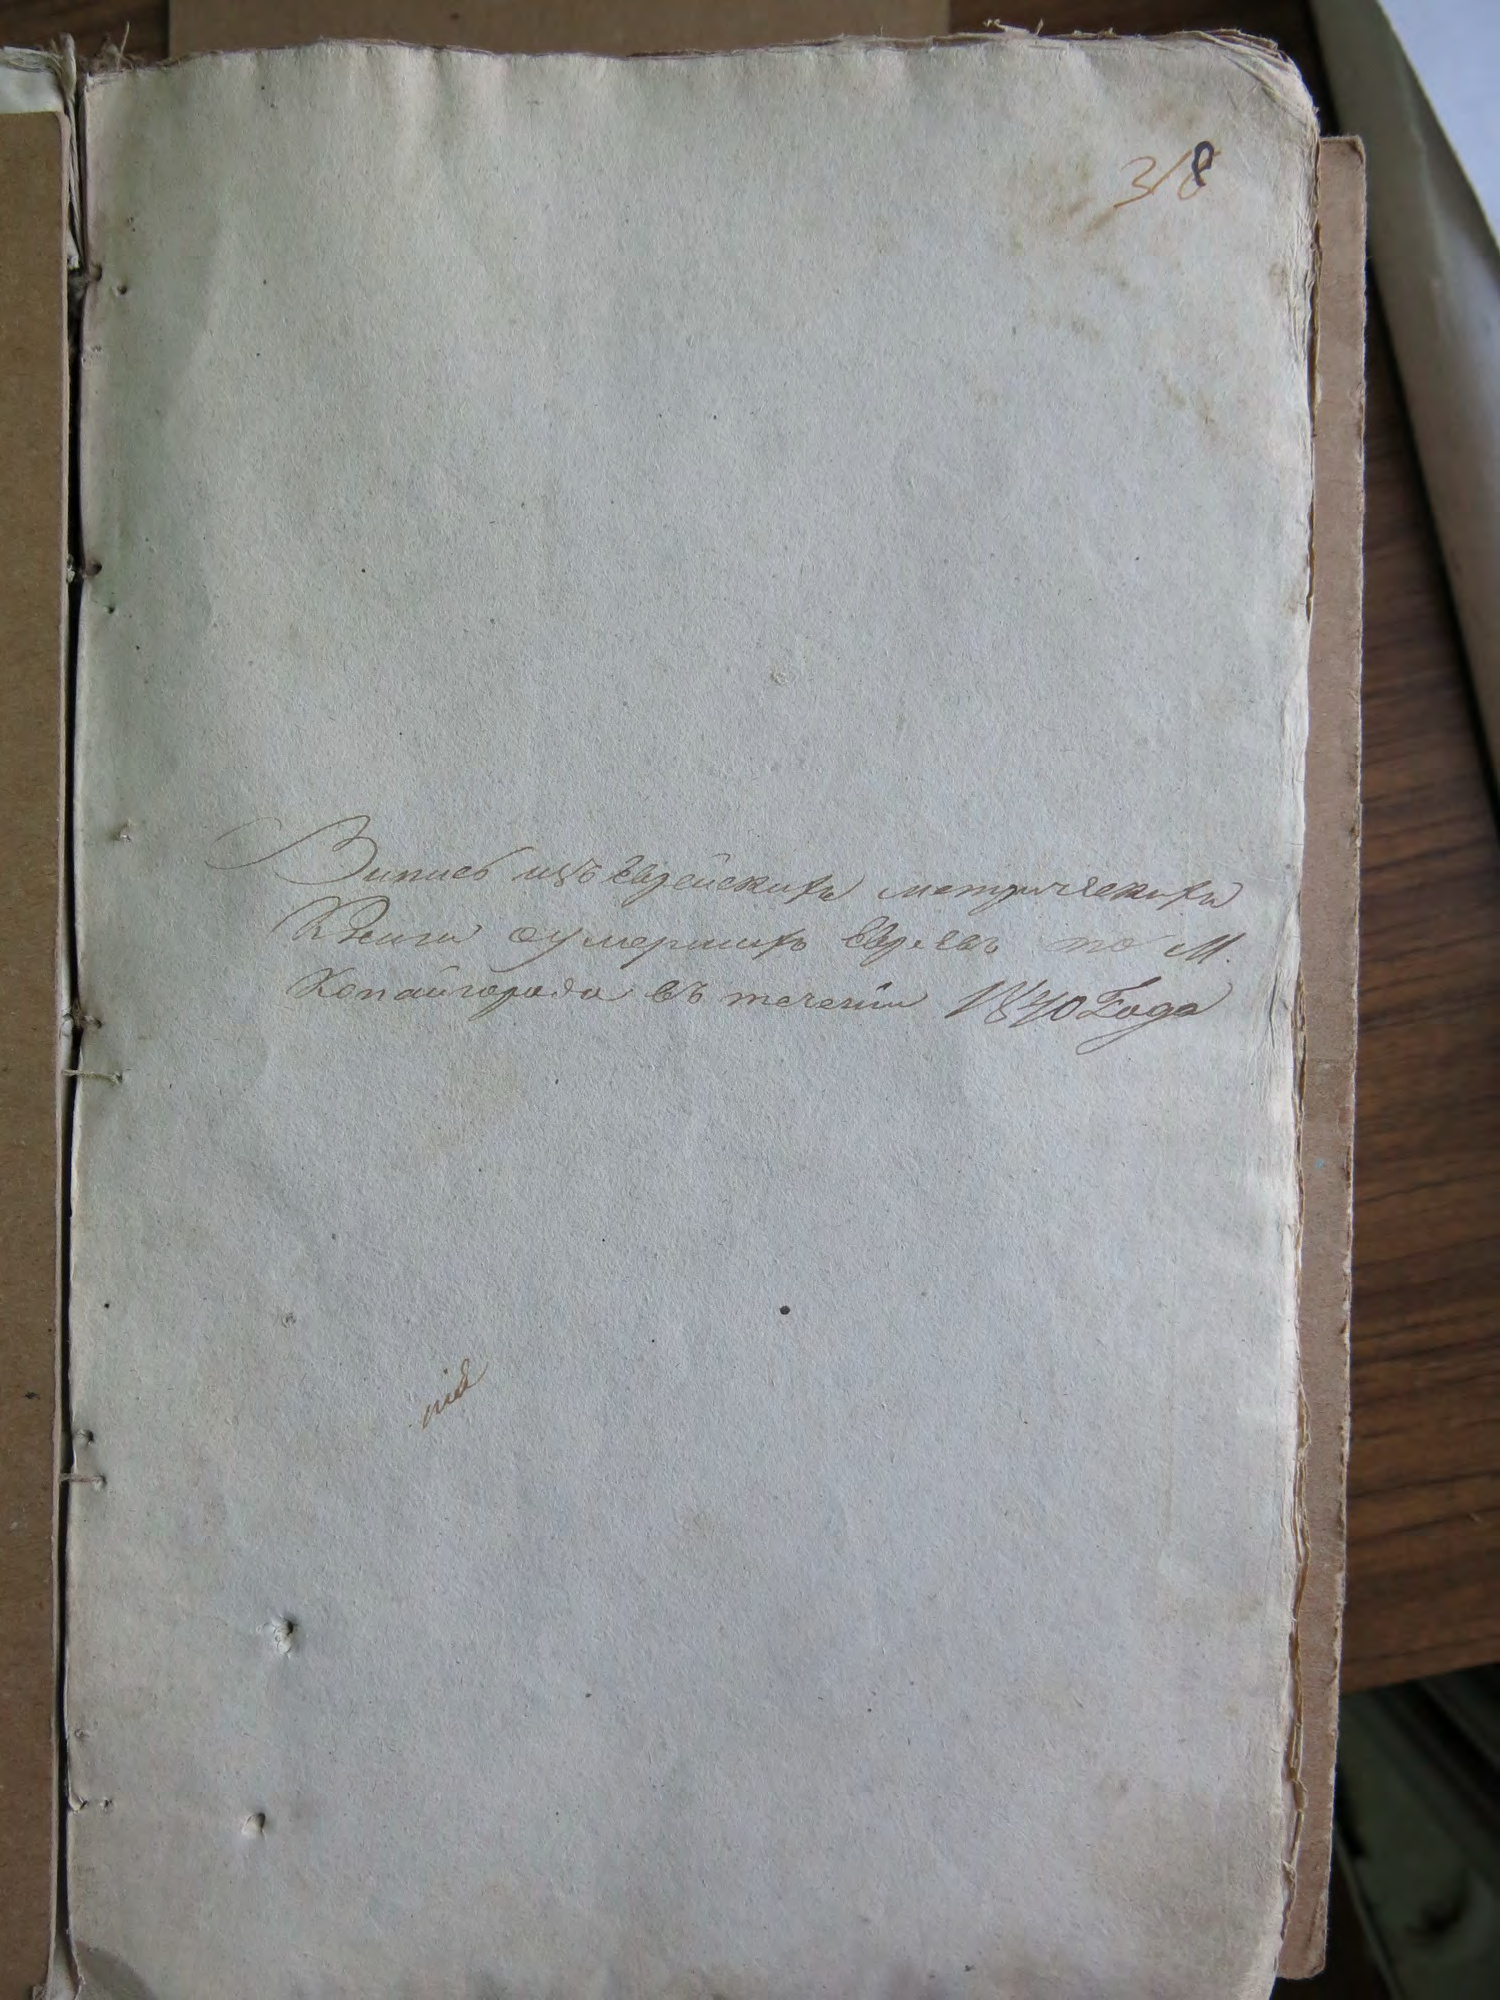 318
Випись изъ Еврейскихъ метрическихъ
Книги оумершихъ Евреевъ по М.
Копайгорода въ течении 1840 Года